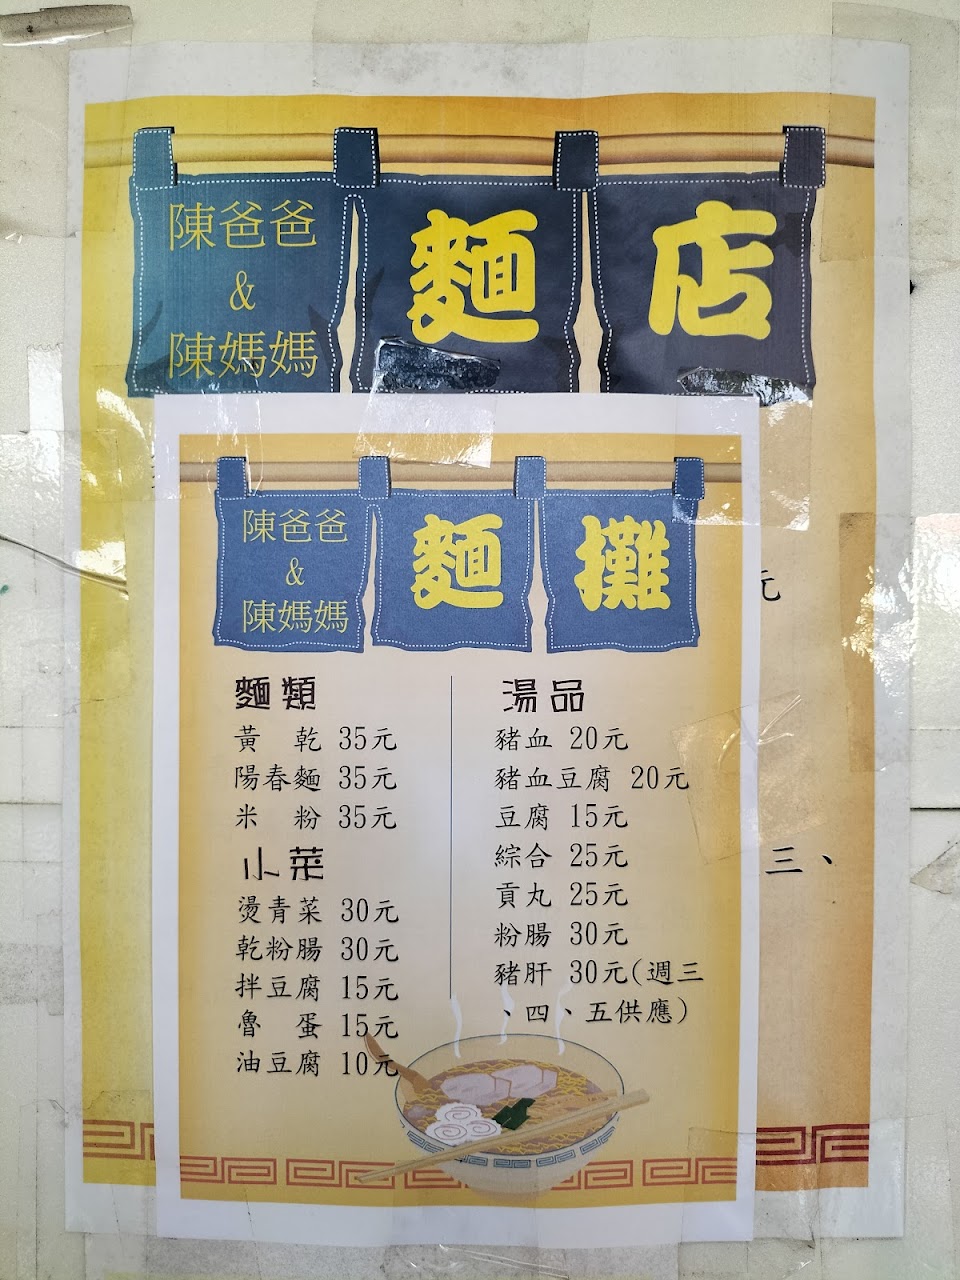 陳爸爸
&
陳媽媽
麵店
陳爸爸
&
陳媽媽
麵攤
元
三、
麵類
黃 乾 35元
陽春麵 35元
米 粉 35元
小菜
燙青菜 30元
乾粉腸 30元
拌豆腐 15元
魯 蛋 15元
油豆腐 10元
湯品
豬血 20元
豬血豆腐 20元
豆腐 15元
綜合 25元
貢丸 25元
粉腸 30元
豬肝 30元(週三
、四、五供應)